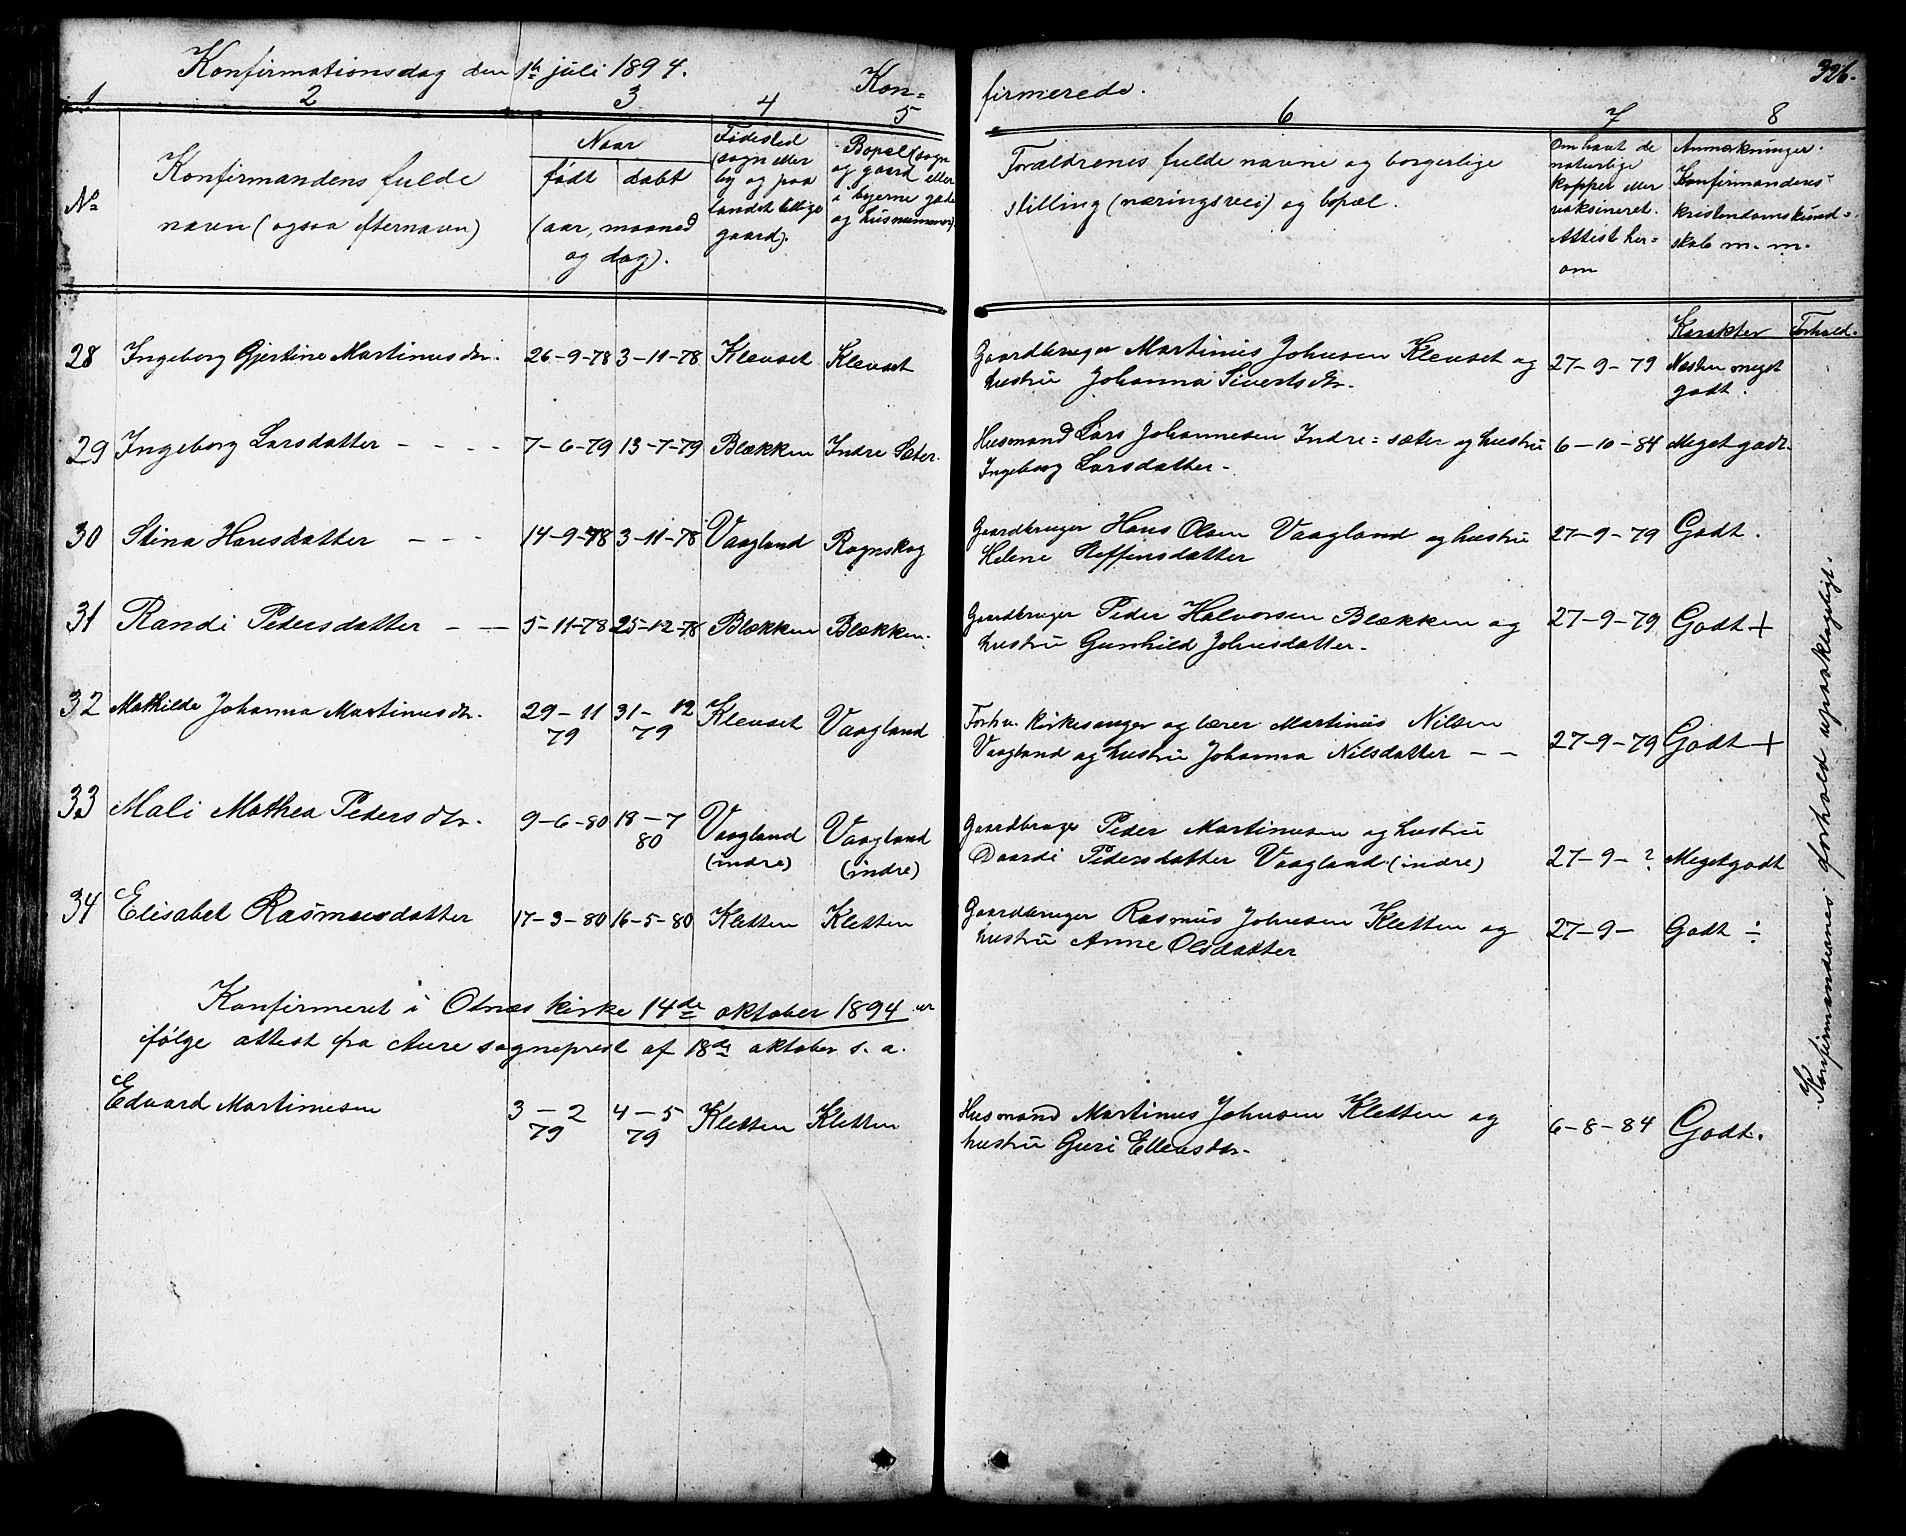 Konfirmationsdag den 1ste juli 1894.
Kon=
firmerede.
326.
1 2 3 4 5 6 7 8
No
Konfirmandens fulde
navn (ogsaa efternavn)
Naar
født døbt
(aar, maaned
og dag).
Fødested
(sogn eller
by og paa
landet tillige
gaard).
Bopæl (sogn
og gaard eller
i byerne gade
og husnummer).
Forældrenes fulde navne og borgerlige
stilling (næringsvei) og bopæl.
Om havt de
naturlige
kopper eller
vaksineret.
Attest her=
om
Anmærkninger.
Konfirmandens
kristendomskund=
skab m. m.
Karakter Forhold.
28 Ingeborg Gjertine Martinusdtr. 26-9-78 3-11-78 Klevset Klevset Gaardbruger Martinus Johnsen Klevset og 27-9-79 Næsten meget
hustru Johanna Sivertsdtr. godt.
29 Ingeborg Larsdatter - - - 7-6-79 13-7-79 Blækken Indre Sæter. Husmand Lars Johannesen Indre=sæter og hustru 6-10-84 Meget godt.
Ingeborg Larsdatter -
30 Stina Hansdatter - - - 14-9-78 3-11-78 Vaagland Rognskog Gaardbruger Hans Olsen Vaagland og hustru 27-9-79 Godt.
Helene Steffensdatter
31 Randi Pedersdatter - - 5-11-78 25-12-78 Blækken Blækken. Gaardbruger Peder Halvorsen Blækken og 27-9-79 Godt +
hustru Gunhild Johnsdatter -
32 Mathilde Johanna Martinusdtr. 29-11 31-12 Klevset Vaagland Forhv. kirkesanger og lærer Martinus Nilsen
79 79 Vaagland og hustru Johanna Nilsdatter - - 27-9-79 Godt +
33 Mali Mathea Pedersdtr. 9-6-80 18-7 Vaagland Vaagland Gaardbruger Peder Martinusen og hustru
80 (indre) (indre) Daardi Pedersdatter Vaagland (indre) 27-9-? Meget godt
34 Elisabet Rasmusdatter 17-3-80 16-5-80 Kletten Kletten Gaardbruger Rasmus Johnsen Kletten og 27-9- Godt ÷
hustru Anne Olsdatter
Konfirmeret i Otnæs kirke 14de oktober 1894 er
ifølge attest fra Aure sogneprest af 18de oktober s. a.
Edvard Martinusen 3-2 4-5 Kletten Kletten Husmand Martinus Johnsen Kletten og 6-8-84 Godt.
79 79 hustru Guri Ellensdtr.
Konfirmandernes forhold upaaklageligt.